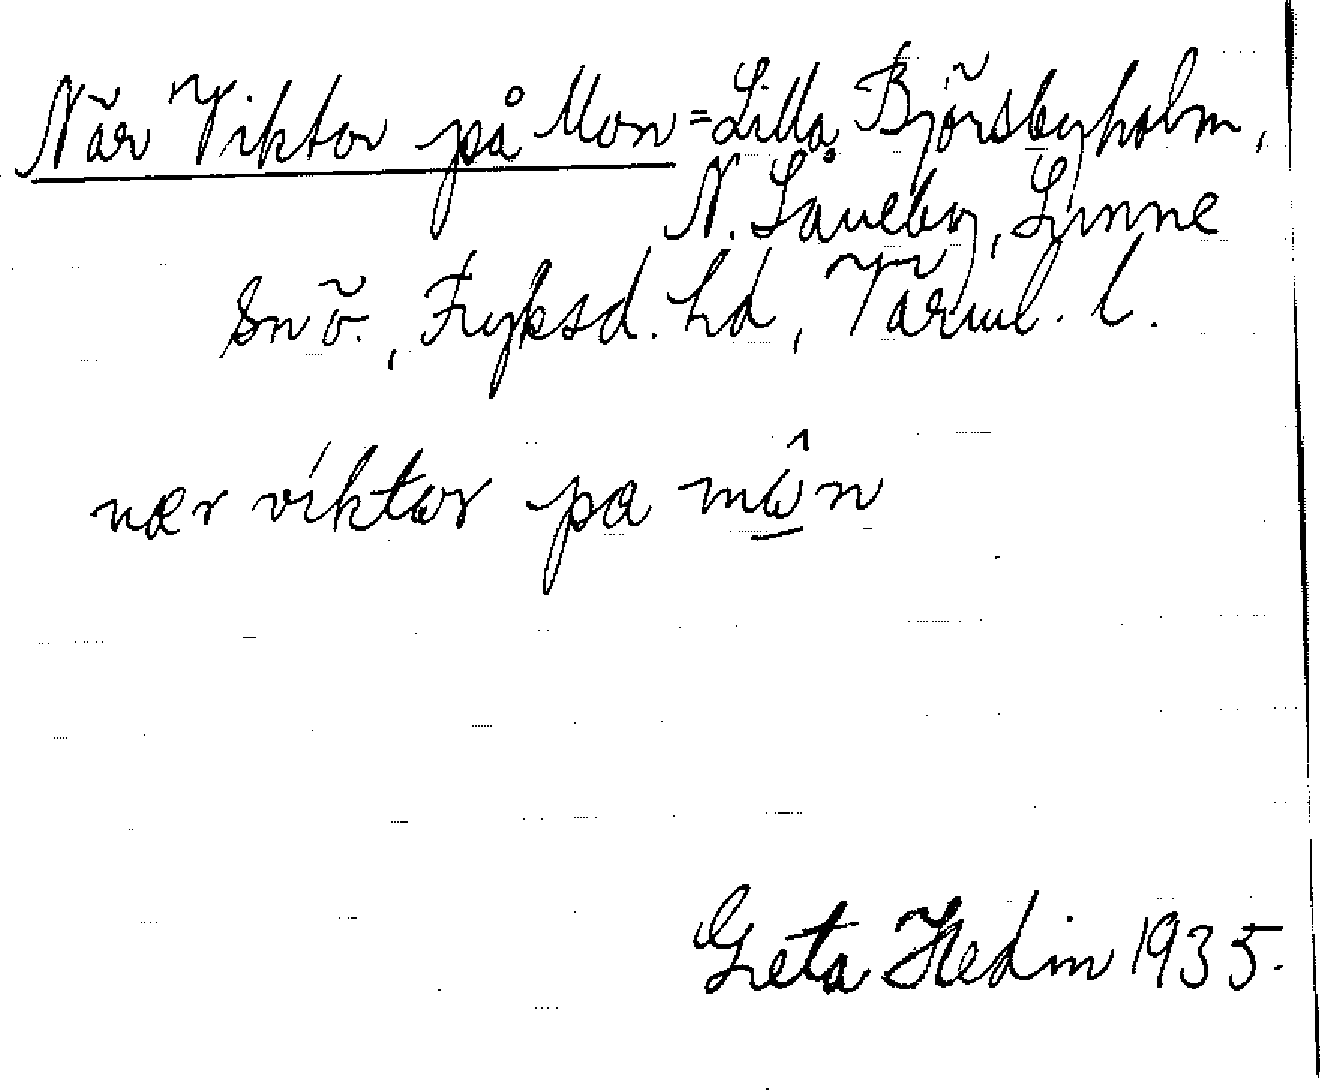 När Viktor på Mon = Lilla Björsbyholm,
N. Låneby, Lysvik
sn., Fryksd. hd, Värml. l.
nær viktær pa môn
Greta Hedin 1935.